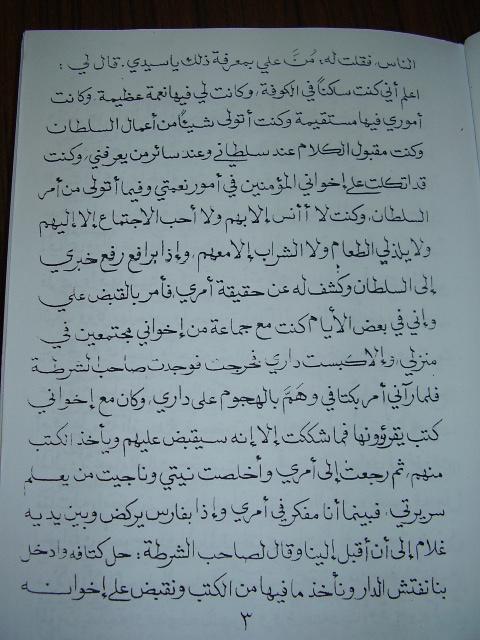 الناس، فقلت له: مُنَّ علي بمعرفة ذلك يا سيدي. قال لي:
اعلم أني كنت سكنتاً في الكوفة، وكانت لي فيها نعمة عظيمة، وكانت
أموري فيها مستقيمة وكنت أتولى شيئاً من أعمال السلطان
وكنت مقبول الكلام عند سلطاني وعند سائر من يعرفني، وكنت
قد اتكلت على إخواني المؤمنين في أمور نعمتي وفيما أتولى من أمر
السلطان، وكنت لا أأنس إلا بهم ولا أحب الاجتماع إلا إليهم
ولا يلذ لي الطعام ولا الشراب إلا معهم، وإذا برافع رفع خبري
إلى السلطان وكُشف له عن حقيقة أمري، فأمر بالقبض علي
وإني في بعض الأيام كنت مع جماعة من إخواني مجتمعين في
منزلي، وإلا كبست داري فخرجت فوجدت صاحب الشرطة
فلما رآني أمر بكتافي وهَمَّ بالهجوم على داري، وكان مع إخواني
كتب يقرؤونها فما شككت إلا إنه سيقبض عليهم ويأخذ الكتب
منهم، ثم رجعت إلى أمري وأخلصت نيتي وناجيت من يعلم
سريرتي، فبينما أنا مفكر في أمري وإذا بفارس يركض وبين يديه
غلام إلى أن أقبل إلينا وقال لصاحب الشرطة: حل كتافه وادخل
بنا نفتش الدار ونأخذ ما فيها من الكتب ونقبض على إخوانه
٣